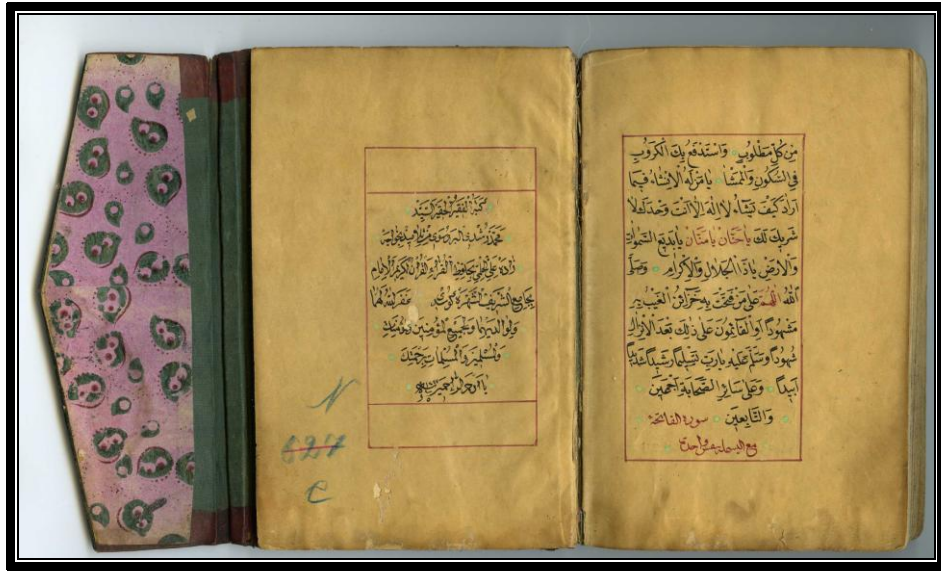 مِنْ كُلِّ مَطْلُوبٍ وَاسْتَدْفَعُ بِكَ الْكُرُوبِ
فِي السُّكُونِ وَالْمَمْشَا يَا مَنْ لَهُ الْاِنْشَاءُ فِيمَا
اَرَادَ كَيْفَ يَشَاءُ لَا اِلٰهَ اِلَّا اَنْتَ وَحْدَكَ لَا
شَرِيكَ لَكَ يَا حَنَّانُ يَا مَنَّانُ يَا بَدِيعَ السَّمٰوَاتِ
وَالْاَرْضِ يَا ذَا الْجَلَالِ وَالْاِكْرَامِ وَصَلَّى
اللّٰهُ اللّٰهُمَّ عَلَى مَنْ فَتَحْتَ بِهِ خَزَائِنَ الْغَيْبِ
مَشْهُودًا وَالْقَائِمُونَ عَلَى ذٰلِكَ بَعْدَ
شُهُودًا وَسَلِّمْ عَلَيْهِ يَا رَبِّ تَسْلِيمًا
اَبَدِيًّا وَعَلَى سَائِرِ الصَّحَابَةِ اَجْمَعِينَ
وَالتَّابِعِينَ سورة الفاتحة
مع البسملة
كَتَبَهُ الْفَقِيرُ الْحَقِيرُ السَّيِّدُ
مُحَمَّد رُشْدِي مِنْ تَلَامِيذِ خَوَاجَه
زَادَه عَلِي حَافِظِ الْقُرْآنِ الْكَرِيمِ الْاِمَام
بِجَامِعِ الشَّرِيفِ الشَّهِيرِ غَفَرَ اللّٰهُ لَهُمَا
وَلِوَالِدَيْهِمَا وَلِجَمِيعِ الْمُؤْمِنِينَ
وَالْمُسْلِمِينَ وَالْمُسْلِمَاتِ بِرَحْمَتِكَ
يَا اَرْحَمَ الرَّاحِمِينَ